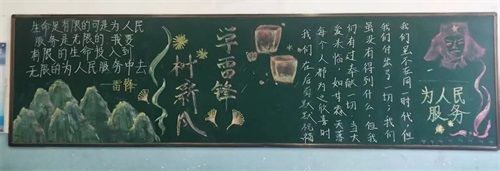 生命是有限的可是为人民
服务是无限的 我要
有限的生命投入到
无限的为人民服务中去
——雷锋
学雷锋
树新风
我们虽不在同一时代，但
我们付出了一切；我们
虽没有得到什么，但我
们有过奉献一切，当大
每个人都为之欣喜时
我们在后面默默祝福
为人民
服务